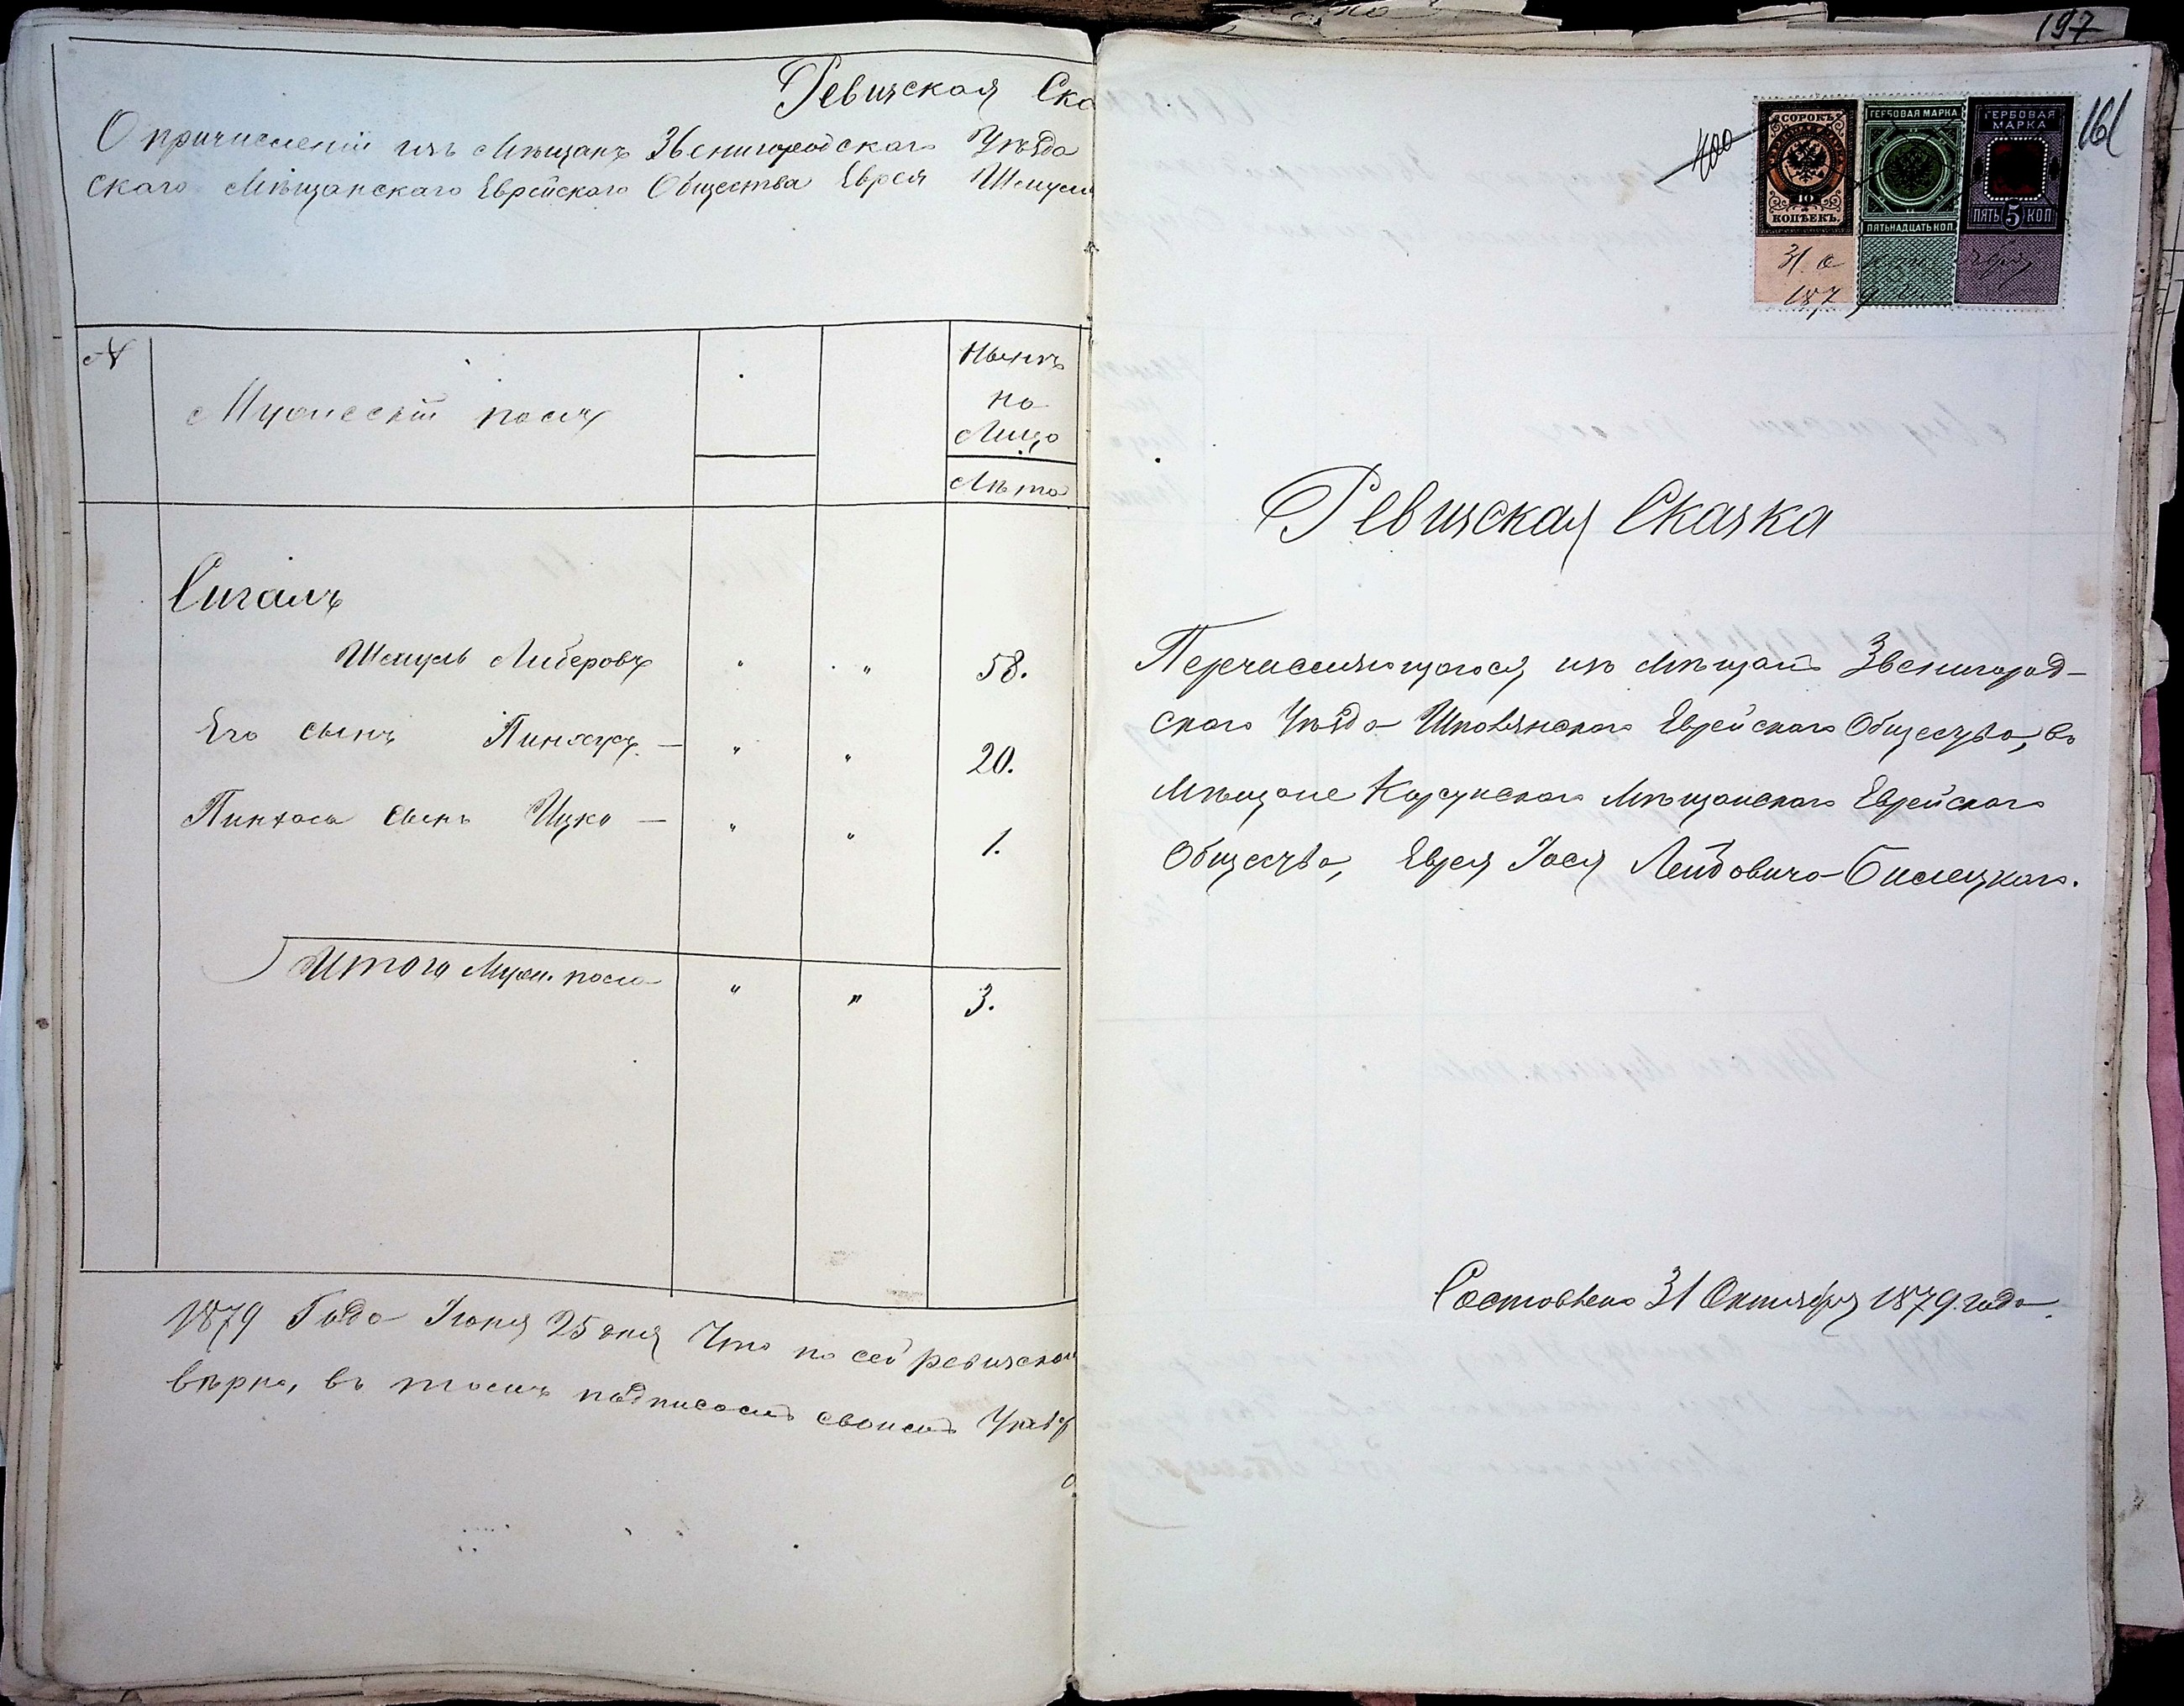 Ревизская Ска
О причислении изъ Мѣщанъ Звенигородскаго Уѣзда
скаго Мѣщанскаго Еврейскаго Общества Еврея Шмуля
№
Мужескій полъ
Нынѣ
на
Лицо
Лѣта
Сигалъ
Шмуль Либеровъ " " 58.
Его сынъ Пинхусъ — " " 20.
Пинхаса сынъ Ицко — " " 1.
Итого Муж. пола " " 3.
1879 Года Іюня 25 дня Что по сей ревизской
вѣрно, въ томъ подписомъ своимъ
197
161
400
СОРОКЪ
10
КОПѢЕКЪ.
ГЕРБОВАЯ МАРКА
ПЯТЬНАДЦАТЬ КОП
ГЕРБОВАЯ
МАРКА
ПЯТЬ 5 КОП
31 о
1879
Ревизская Сказка
Перечисляющагося изъ Мѣщанъ Звенигород-
скаго Уѣзда Шполянскаго Еврейскаго Общества, въ
Мѣщане Корсунскаго Мѣщанскаго Еврейскаго
Общества, Еврея Іося Лейбовича Билецкаго.
Составлена 31 Октября 1879 года.